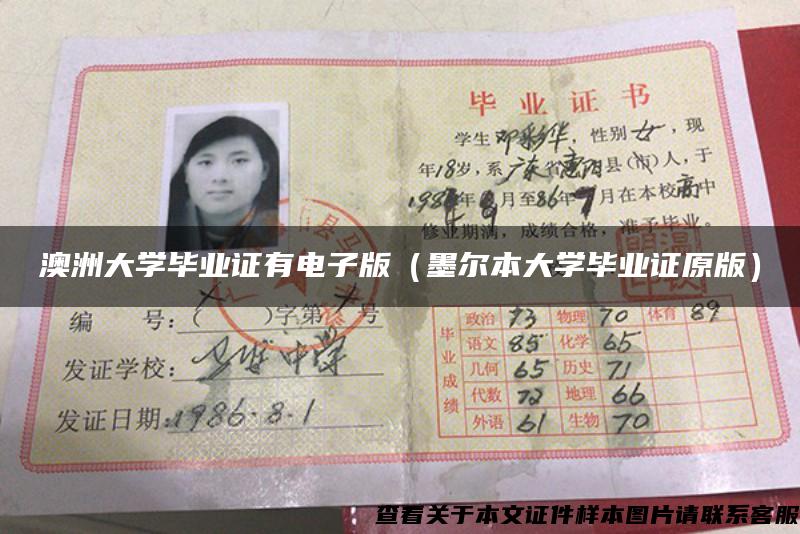 毕业证书
学生邓彩华，性别女，现
年18岁，系广东省惠阳县(市)人，于
1983年9月至86年7月在本校高中
修业期满，成绩合格，准予毕业。
澳洲大学毕业证有电子版（墨尔本大学毕业证原版）
编　　号：（　　）字第　号
发证学校：马安中学
发证日期：1986.8.1
毕业成绩
政治 73 物理 70 体育 89
语文 85 化学 65
几何 65 历史 71
代数 72 地理 66
外语 61 生物 70
查看关于本文证件样本图片请联系客服